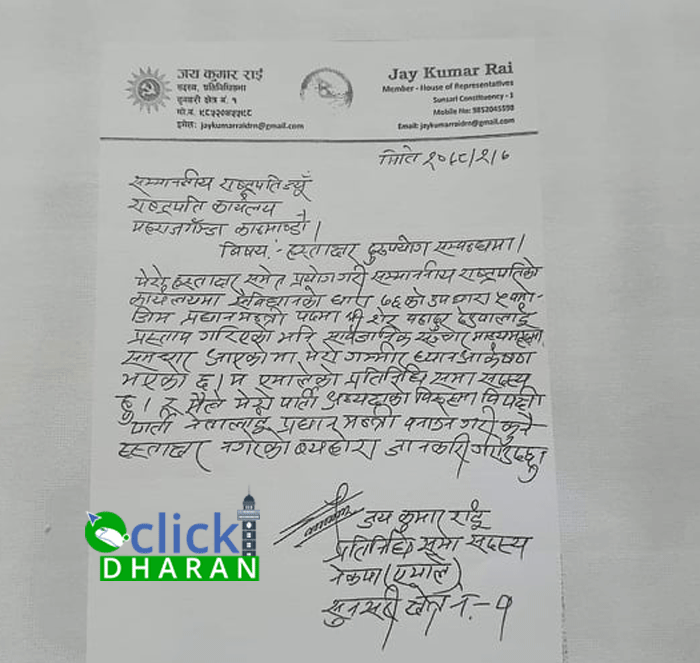 जय कुमार राई
सदस्य, प्रतिनिधिसभा
सुनसरी क्षेत्र नं. १
मो.नं. ९८५२०४५५९८
इमेल: jaykumarraidrn@gmail.com
Jay Kumar Rai
Member - House of Representatives
Sunsari Constituency - 1
Mobile No: 9852045598
Email: jaykumarraidrn@gmail.com
मिति २०७८/२/७
सम्माननीय राष्ट्रपतिज्यू
राष्ट्रपति कार्यलय
महाराजगञ्ज काठमाण्डौ।
विषय:- हस्ताक्षर दुरुपयोग सम्बन्धमा।
मेरो हस्ताक्षर समेत प्रयोग गरी सम्माननीय राष्ट्रपतिको
कार्यलयमा संविधानको धारा ७६ को उपधारा ५ बमो-
जिम प्रधानमन्त्री पदमा श्री शेर बहादुर देउवालाई
प्रस्ताव गरिएको भनि सार्वजानिक सञ्चार माध्यमहरुमा
समाचार आएकामा मेरो गम्भीर ध्यानआकर्षण
भएको छ। म एमालेको प्रतिनिधि सभा सदस्य
हु। र मैले मेरो पार्ती अध्यक्षका विरुद्धमा विपक्षी
पार्ती नेतालाई प्रधान मन्त्री बनाउने गरी कुनै
हस्ताक्षर नगरेको ब्यहोरा जानकारी गराउदछु।
जय कुमार राई
प्रतिनिधि सभा सदस्य
नेकपा (एमाले)
सुनसरी क्षेत्र नं.-१
click
DHARAN